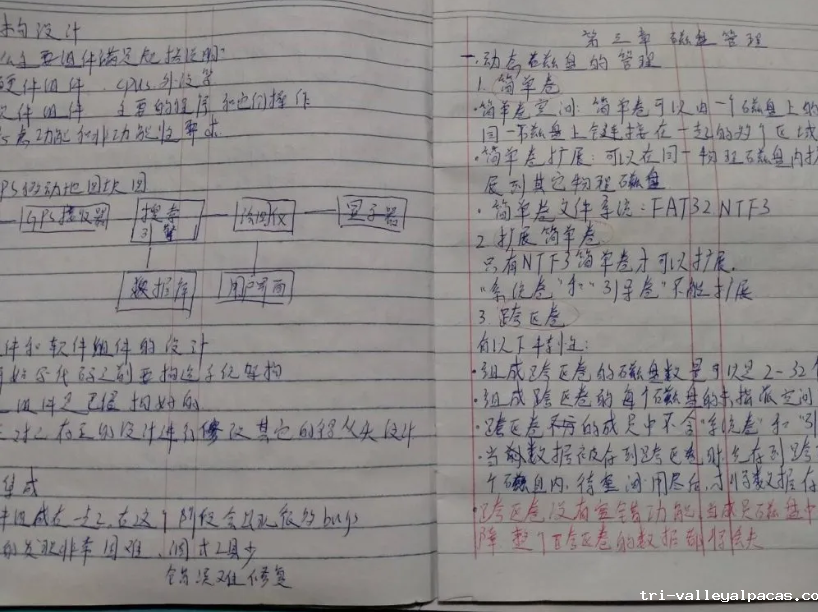 构设计
主要组件满足
硬件组件、CPU、外设等
软件组件 主要的程序和它们操作
功能和非功能性要求
GPS移动地图
GPS接收器
搜索引擎
绘图仪
显示器
数据库
用户界面
件和软件组件的设计
集成
bugs
的发现非常困难、调试工具少
错误难修复
第三章 磁盘管理
一·动态磁盘的管理
1. 简单卷
·简单卷空间:简单卷可以由一个磁盘上的
同一磁盘上链接在一起的多个区域
·简单卷扩展:可以在同一物理磁盘内扩
展到其它物理磁盘
·简单卷文件系统:FAT32 NTF3
2. 扩展简单卷
只有NTF3简单卷才可以扩展.
"系统卷"和"引导卷"不能扩展
3. 跨区卷
有以下特性:
·组成跨区卷的磁盘数量可以是2-32个
·组成跨区卷的每个磁盘的未指派空间
·跨区卷的成员中不含"系统卷"和"引
·当数据被存到跨区卷时,先存到跨
个磁盘内,待空间用尽后,才将数据存
·跨区卷没有容错功能,当成员磁盘中
障 整个跨区卷的数据都将丢失
tri-valleyalpacas.com